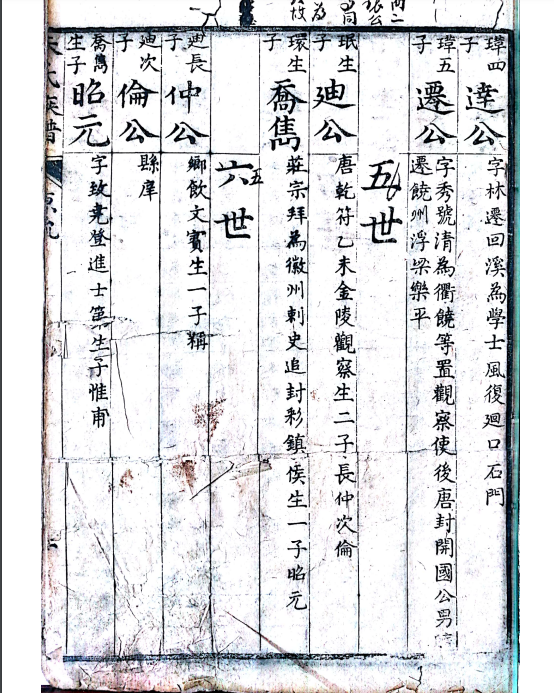 瑋四子 達公 字林遷回溪為學士風復廻口石門
瑋五子 遷公 字秀號清為衢饒等置觀察使後唐封開國公男
遷饒州浮梁樂平
五世
珉生子 廸公 唐乾符乙未金陵觀察生二子長仲次倫
環生子 喬雋 莊宗拜為徽州刺史追封彩鎮侯生一子昭元
六世
五
廸長子 仲公 鄉飲文賓生一子稱
廸次子 倫公 縣庠
喬雋生子 昭元 字玫堯登進士第生子惟甫